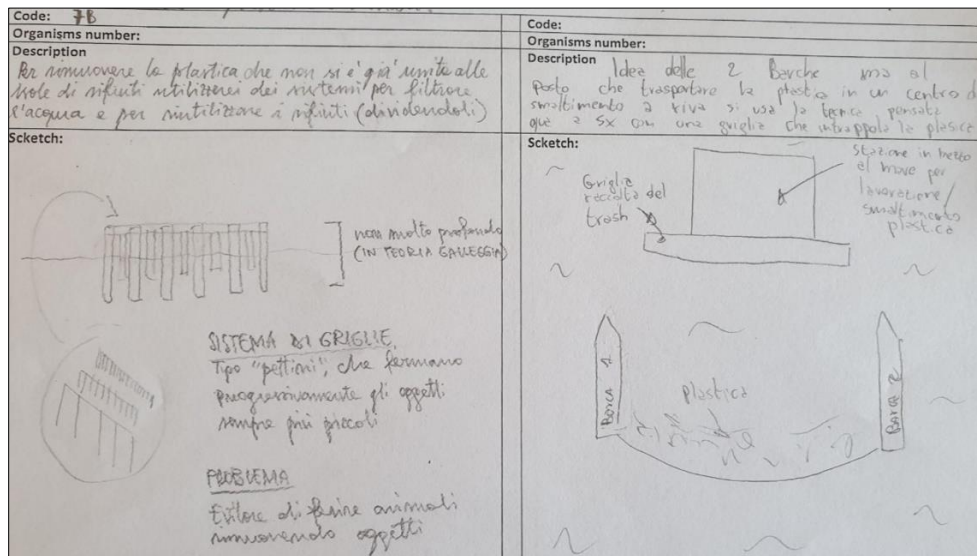 Code: 7B
Organisms number:
Description
Per rimuovere la plastica che non si è già unita alle
isole di rifiuti utilizzerei dei sistemi per filtrare
l'acqua e per riutilizzare i rifiuti (dividendoli)
Scketch:
non molto profondo
(IN TEORIA GALLEGGIA)
SISTEMA DI GRIGLIE.
Tipo "pettini", che fermano
progressivamente gli oggetti
sempre più piccoli
PROBLEMA
Evitare di ferire animali
rimuovendo oggetti
Code:
Organisms number:
Description Idea delle 2 Barche ma al
posto che trasportare la plastica in un centro di
smaltimento a riva si usa la tecnica pensata
qua a sx con una griglia che intrappola la plasica
Scketch:
Griglia
raccolta del
trash
Stazione in mezzo
al mare per
lavorazione/
smaltimento
plastica
Barca 1
plastica
Barca 2